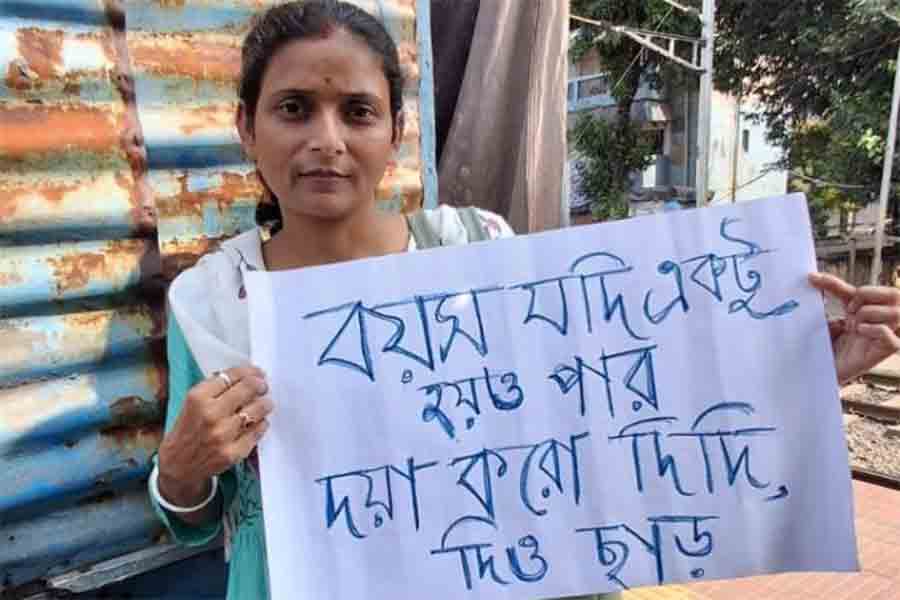 বয়স যদি একটু
হয়ও পার
দয়া করো দিদি,
দিও ছাড়